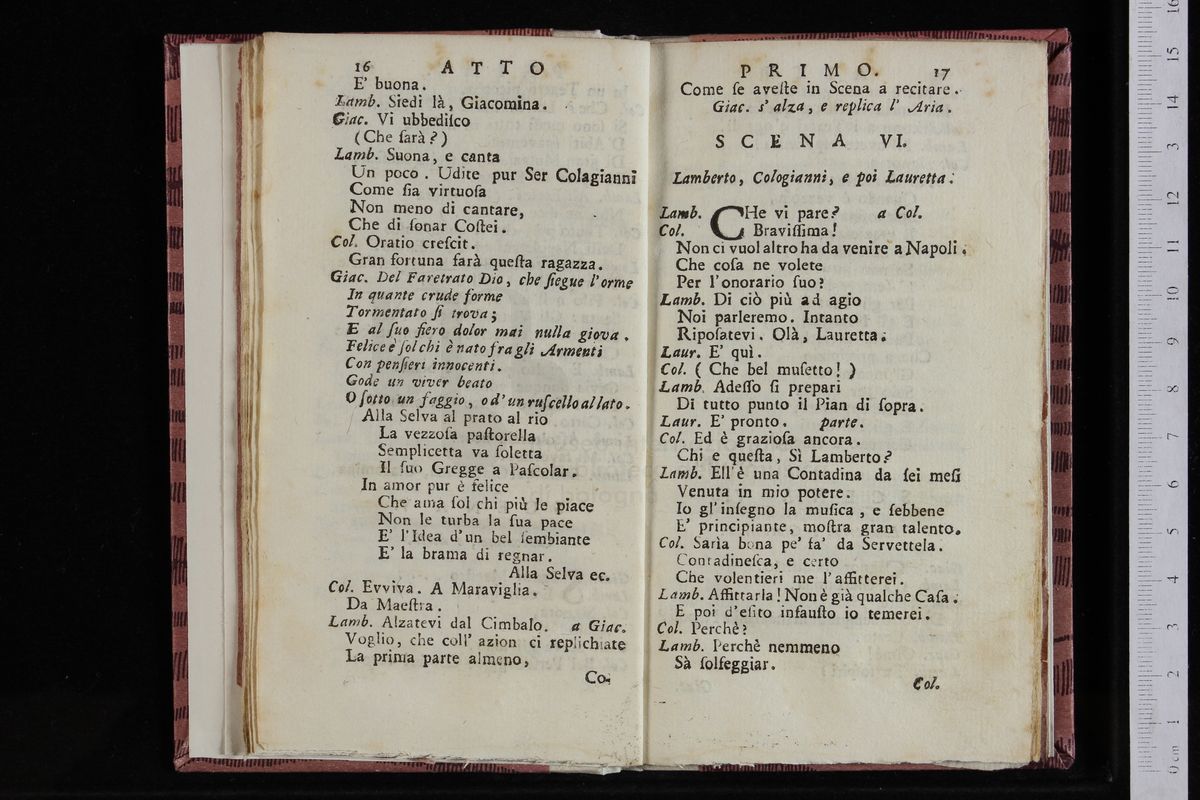 16 ATTO
E' buona.
Lamb. Siedi là, Giacomina.
Giac. Vi ubbediſco
(Che ſarà?)
Lamb. Suona, e canta
Un poco. Udite pur Ser Colagianni
Come ſia virtuoſa
Non meno di cantare,
Che di ſonar Coſtei.
Col. Oratio creſcit.
Gran fortuna farà queſta ragazza.
Giac. Del Faretrato Dio, che ſiegue l'orme
In quante crude forme
Tormentato ſi trova;
E al ſuo fiero dolor mai nulla giova.
Felice è ſol chi è nato fra gli Armenti
Con penſieri innocenti.
Gode un viver beato
O ſotto un faggio, o d'un ruſcello al lato.
Alla Selva al prato al rio
La vezzoſa paſtorella
Semplicetta va ſoletta
Il ſuo Gregge a Paſcolar.
In amor pur è felice
Che ama ſol chi più le piace
Non le turba la ſua pace
E' l'Idea d'un bel ſembiante
E' la brama di regnar.
Alla Selva ec.
Col. Evviva. A Maraviglia.
Da Maeſtra.
Lamb. Alzatevi dal Cimbalo. a Giac.
Voglio, che coll' azion ci replichiate
La prima parte almeno,
Co-
PRIMO. 17
Come ſe aveſte in Scena a recitare.
Giac. s'alza, e replica l'Aria.
SCENA VI.
Lamberto, Cologianni, e poi Lauretta.
Lamb. CHe vi pare? a Col.
Col. Braviſſima!
Non ci vuol altro ha da venire a Napoli.
Che coſa ne volete
Per l'onorario ſuo?
Lamb. Di ciò più ad agio
Noi parleremo. Intanto
Ripoſatevi. Olà, Lauretta.
Laur. E' quì.
Col. (Che bel muſetto!)
Lamb. Adeſſo ſi prepari
Di tutto punto il Pian di ſopra.
Laur. E' pronto. parte.
Col. Ed è grazioſa ancora.
Chi e queſta, Sì Lamberto?
Lamb. Ell'è una Contadina da ſei meſi
Venuta in mio potere.
Io gl'inſegno la muſica, e ſebbene
E' principiante, moſtra gran talento.
Col. Sarìa bona pe' fa' da Servettela.
Contadineſca, e certo
Che volentieri me l'affitterei.
Lamb. Affittarla! Non è già qualche Caſa.
E poi d'eſito infauſto io temerei.
Col. Perchè?
Lamb. Perchè nemmeno
Sà ſolfeggiar.
Col.
0 cm 1 2 3 4 5 6 7 8 9 10 11 12 13 14 15 16